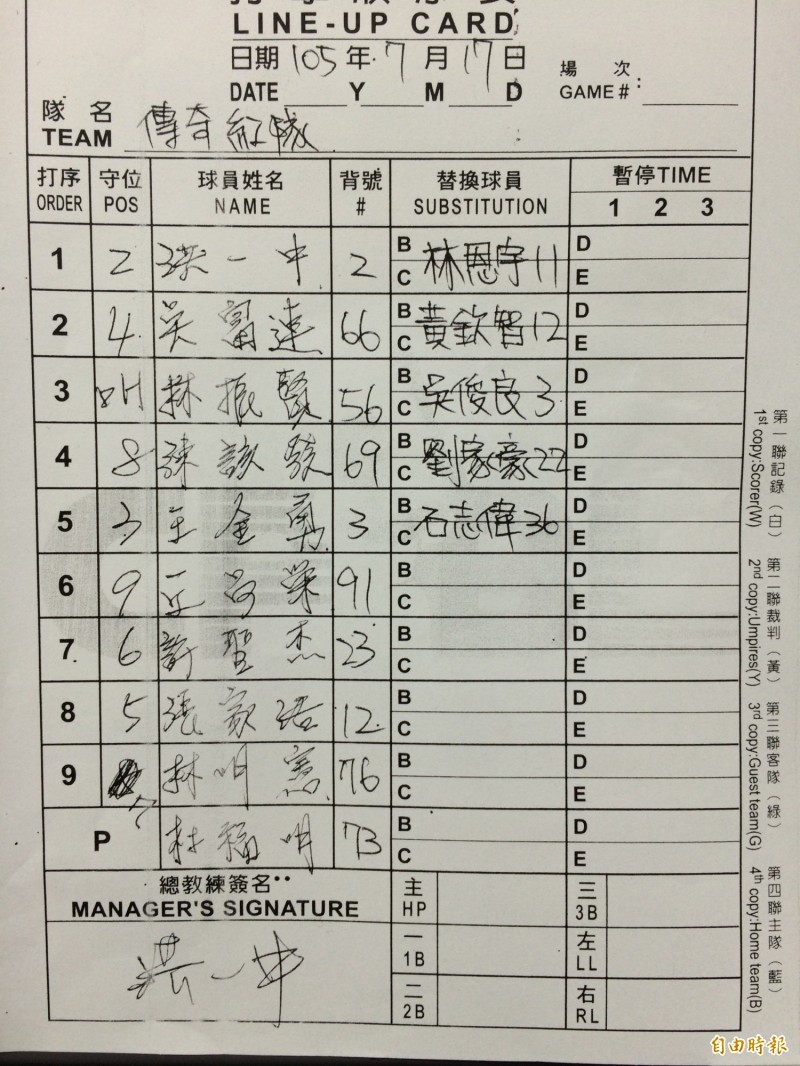 LINE-UP CARD
日期 105 年 7 月 17 日
DATE Y M D
場次
GAME# :
隊名
TEAM 傳奇紅隊
打序 守位 球員姓名 背號 替換球員 暫停TIME
ORDER POS NAME # SUBSTITUTION 1 2 3
1 2 洪一中 2 B C 林恩宇 11 D E
2 4 吳富連 66 B C 黃欽智 12 D E
3 DH 林振賢 56 B C 吳俊良 3 D E
4 8 陳該發 69 B C 劉家豪 22 D E
5 3 王金勇 3 B C 石志偉 36 D E
6 9 丘昌榮 91 B C D E
7 6 許聖杰 23 B C D E
8 5 張家浩 12 B C D E
9 7 林明憲 76 B C D E
P 林福明 73 B C D E
總教練簽名**
MANAGER'S SIGNATURE
洪一中
主 HP 三 3B
一 1B 左 LL
二 2B 右 RL
第一聯記錄(白)
1st copy:Scorer(W)
第二聯裁判(黃)
2nd copy:Umpires(Y)
第三聯客隊(綠)
3rd copy:Guest team(G)
第四聯主隊(藍)
4th copy:Home team(B)
自由時報